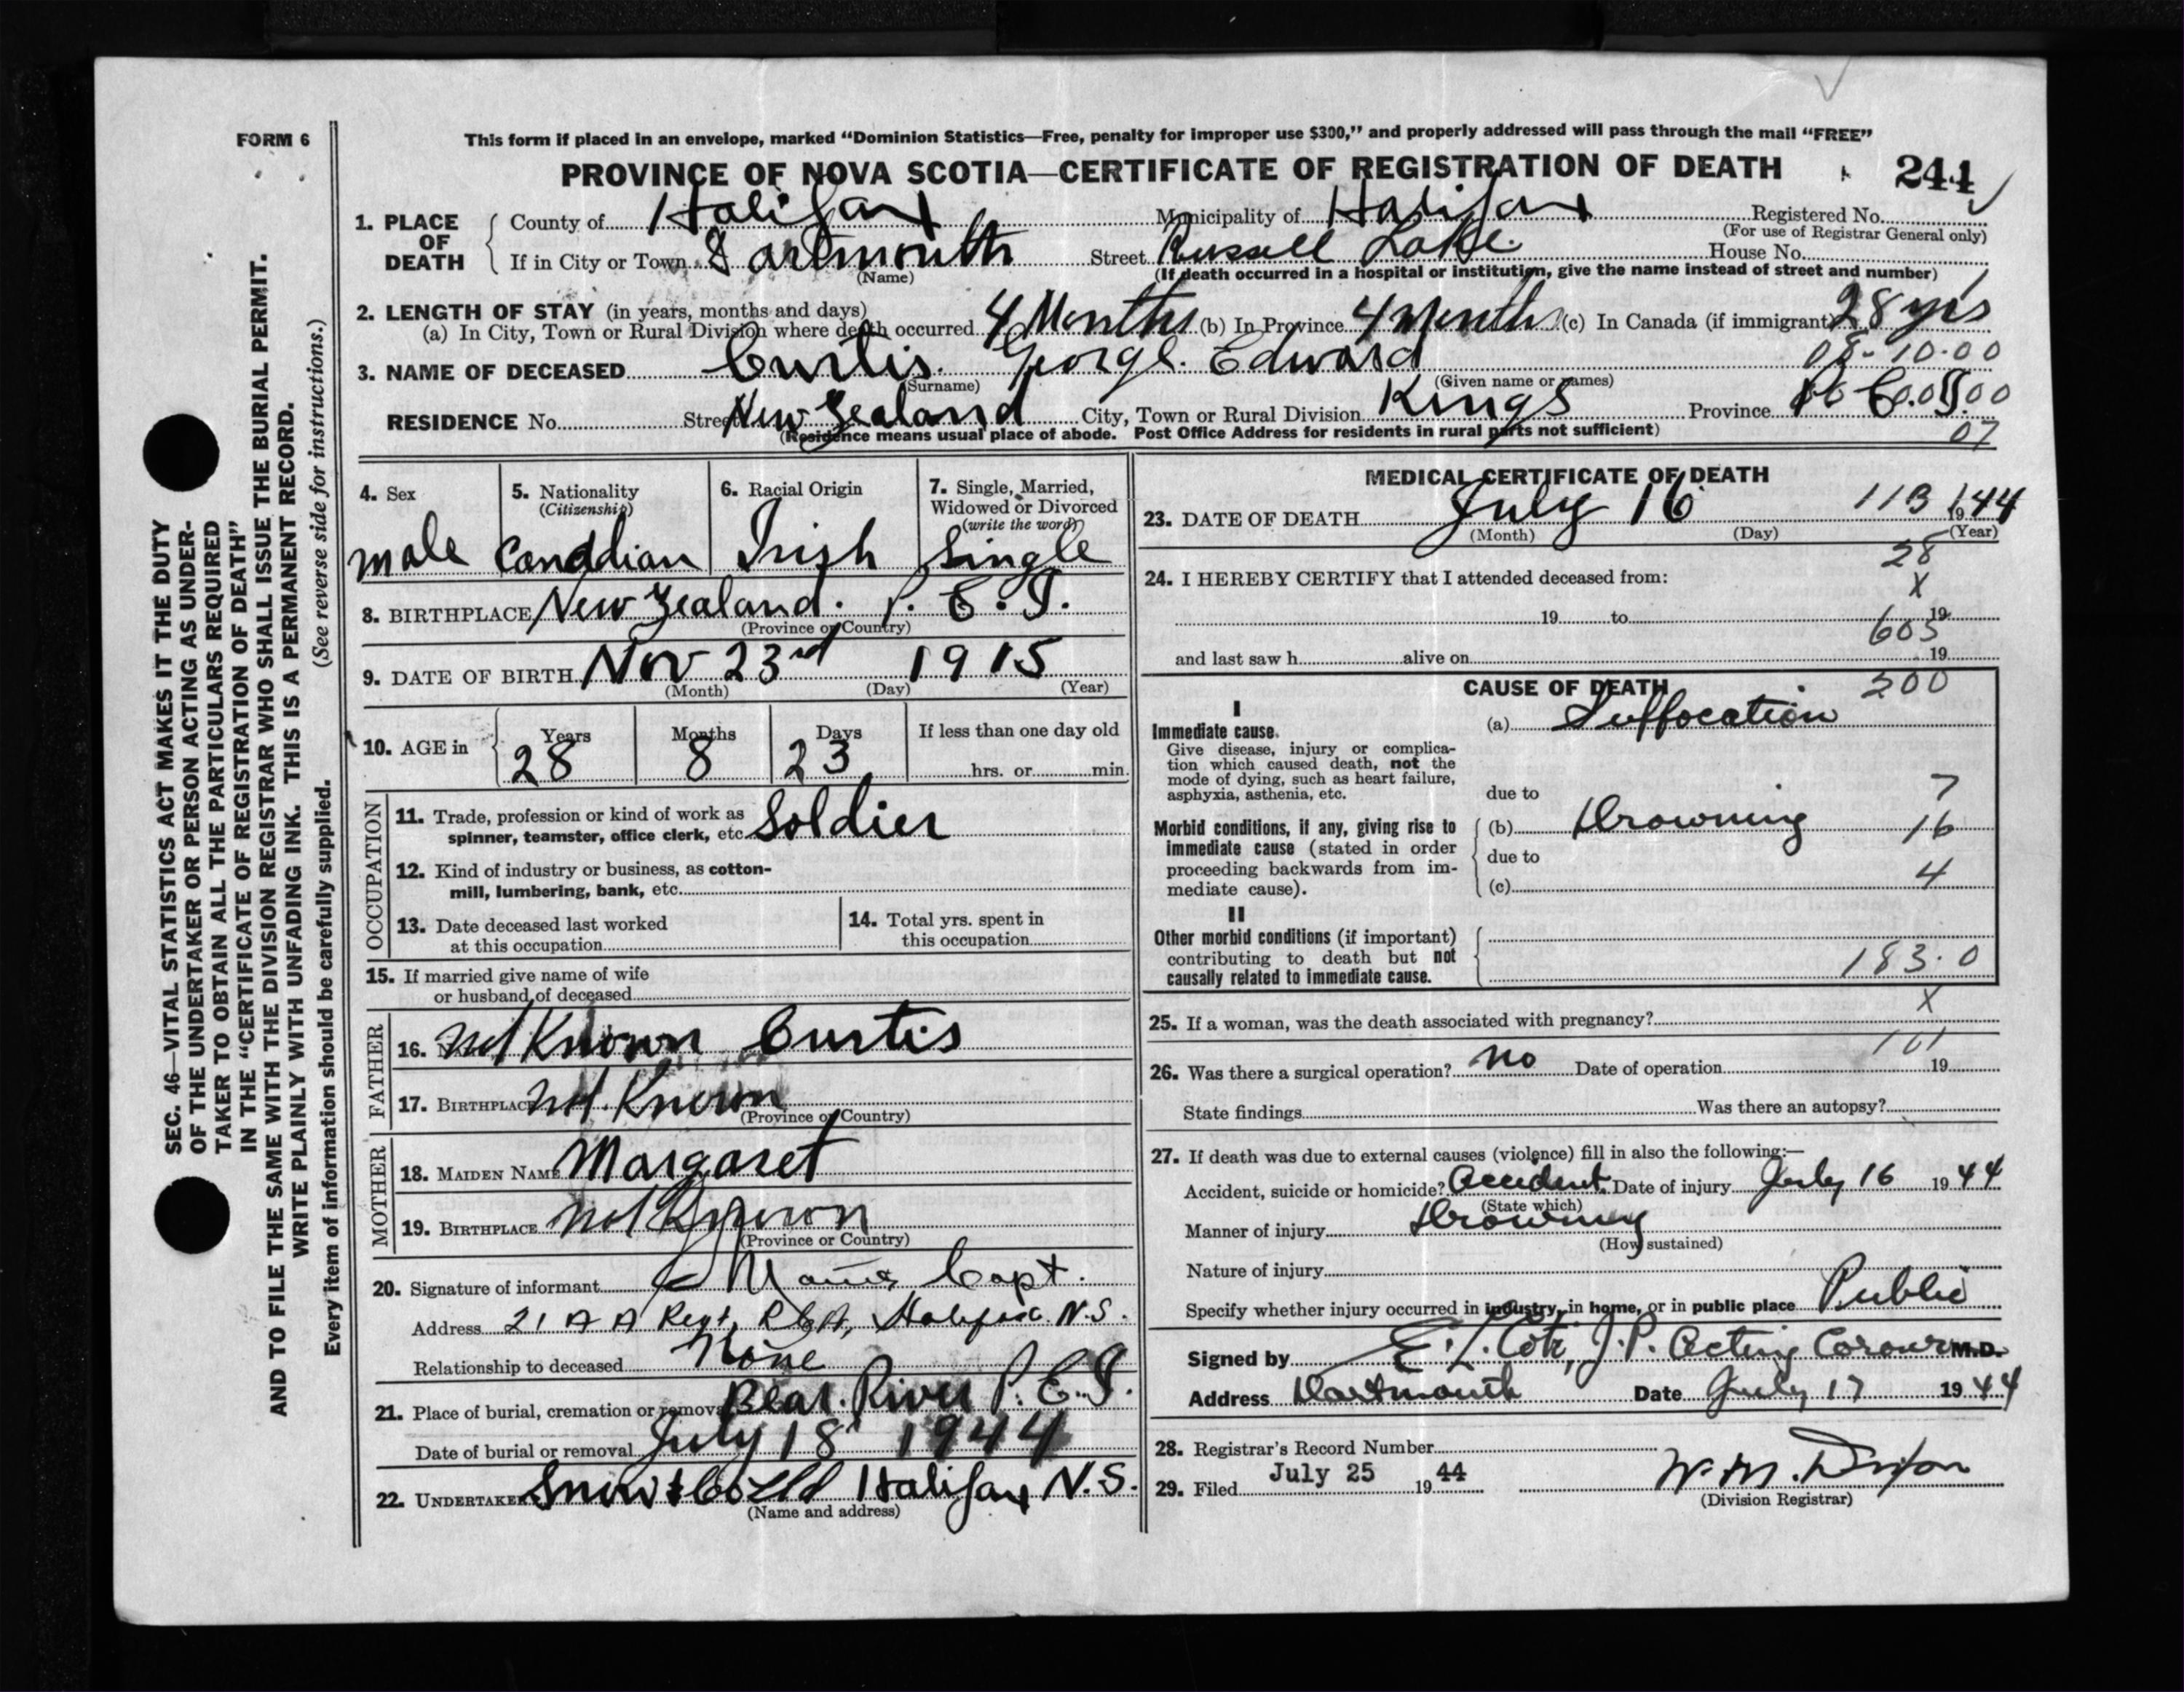 FORM 6
This form if placed in an envelope, marked "Dominion Statistics—Free, penalty for improper use $300," and properly addressed will pass through the mail "FREE"
PROVINCE OF NOVA SCOTIA—CERTIFICATE OF REGISTRATION OF DEATH 244
SEC. 46—VITAL STATISTICS ACT MAKES IT THE DUTY
OF THE UNDERTAKER OR PERSON ACTING AS UNDER-
TAKER TO OBTAIN ALL THE PARTICULARS REQUIRED
IN THE "CERTIFICATE OF REGISTRATION OF DEATH"
AND TO FILE THE SAME WITH THE DIVISION REGISTRAR WHO SHALL ISSUE THE BURIAL PERMIT.
WRITE PLAINLY WITH UNFADING INK. THIS IS A PERMANENT RECORD.
Every item of information should be carefully supplied. (See reverse side for instructions.)
1. PLACE OF DEATH County of Halifax Municipality of Halifax Registered No.
(For use of Registrar General only)
If in City or Town Dartmouth Street Russell Lake House No.
(Name) (If death occurred in a hospital or institution, give the name instead of street and number)
2. LENGTH OF STAY (in years, months and days)
(a) In City, Town or Rural Division where death occurred 4 Months (b) In Province 4 Months (c) In Canada (if immigrant) 28 yrs
08-10-00
3. NAME OF DECEASED Curtis. George. Edward
(Surname) (Given name or names)
RESIDENCE No. Street New Zealand City, Town or Rural Division Kings Province
(Residence means usual place of abode. Post Office Address for residents in rural parts not sufficient)
07
4. Sex 5. Nationality 6. Racial Origin 7. Single, Married,
(Citizenship) Widowed or Divorced
(write the word)
male Canadian Irish Single
8. BIRTHPLACE New Zealand. P. E. I.
(Province or Country)
9. DATE OF BIRTH Nov 23rd 1915
(Month) (Day) (Year)
10. AGE in Years Months Days If less than one day old
28 8 23 hrs. or min.
OCCUPATION
11. Trade, profession or kind of work as
spinner, teamster, office clerk, etc. Soldier
12. Kind of industry or business, as cotton-
mill, lumbering, bank, etc.
13. Date deceased last worked
at this occupation
14. Total yrs. spent in
this occupation
15. If married give name of wife
or husband of deceased
FATHER
16. Not Known Curtis
17. BIRTHPLACE Not Known
(Province or Country)
MOTHER
18. MAIDEN NAME Margaret
19. BIRTHPLACE Not Known
(Province or Country)
20. Signature of informant Capt.
Address 21 A A Regt, RCA, Halifax N.S.
Relationship to deceased None
21. Place of burial, cremation or removal Bear River P. E. I.
Date of burial or removal July 18 1944
22. UNDERTAKER Snow & Co Ltd Halifax N.S.
(Name and address)
MEDICAL CERTIFICATE OF DEATH
23. DATE OF DEATH July 16 113 1944
(Month) (Day) (Year)
28
24. I HEREBY CERTIFY that I attended deceased from:
X
19 to 19
603
and last saw h alive on 19
CAUSE OF DEATH 300
I
Immediate cause. (a) Suffocation
Give disease, injury or complica-
tion which caused death, not the
mode of dying, such as heart failure,
asphyxia, asthenia, etc.
due to 7
Morbid conditions, if any, giving rise to
immediate cause (stated in order
proceeding backwards from im-
mediate cause).
(b) Drowning 16
due to
(c) 4
II
Other morbid conditions (if important)
contributing to death but not
causally related to immediate cause.
183.0
X
25. If a woman, was the death associated with pregnancy?
101
26. Was there a surgical operation? No Date of operation 19
State findings Was there an autopsy?
27. If death was due to external causes (violence) fill in also the following:—
Accident, suicide or homicide? Accident. Date of injury July 16 1944
(State which)
Manner of injury Drowning
(How sustained)
Nature of injury
Specify whether injury occurred in industry, in home, or in public place Public
Signed by E. L. Cote, J.P. Acting Coroner M.D.
Address Dartmouth Date July 17 1944
28. Registrar's Record Number
29. Filed July 25 1944 W. M. Dixon
(Division Registrar)